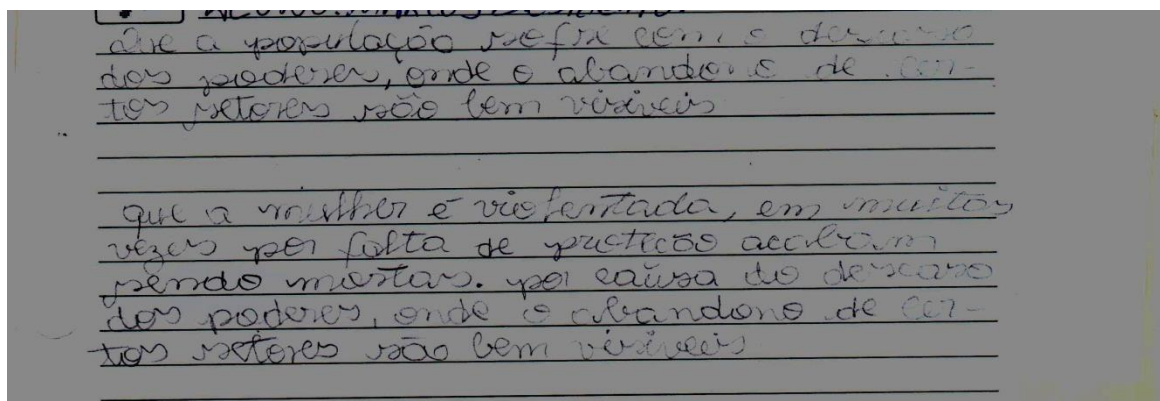 que a população sofre com o descaso
dos poderes, onde o abandono de cer-
tos setores são bem visiveis
que a mulher é violentada, em muitas
vezes por falta de proteção acabam
sendo mortas. por causa do descaso
dos poderes, onde o abandono de cer-
tos setores são bem visiveis